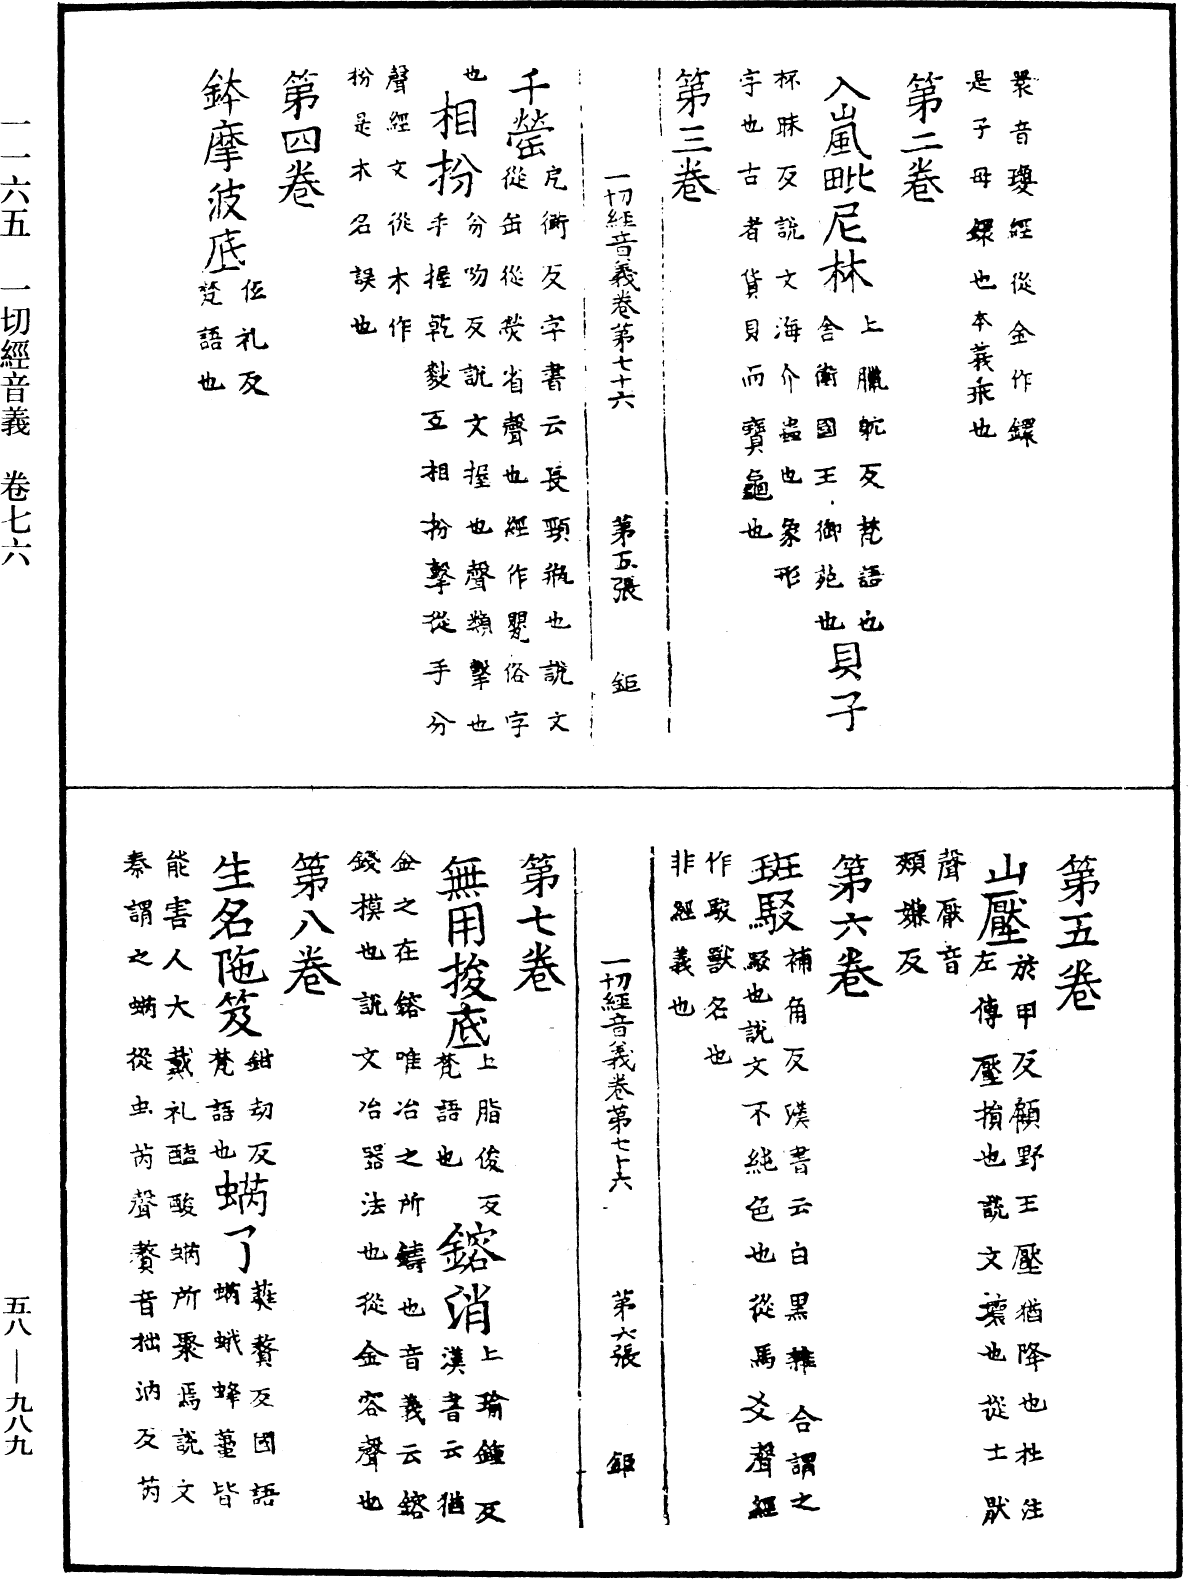 一一六五 一切經音義 卷七六
褁音瓊經從金作鐶
是子母鐶也本義乖也
第二卷
入嵐毗尼林上臘躭反梵語也
舍衛國王御苑也貝子
杯昧反說文海介蟲也象形
字也古者貨貝而寶龜也
第三卷
一切經音義卷第七十六 第五張 鉅
千罃戹衡反字書云長頸瓶也說文
從缶從熒省聲也經作甖俗字
也相扮分吻反說文握也聲類擊也
手握乾麨互相扮擊從手分
聲經文從木作
枌是木名誤也
第四卷
鉢摩波底低礼反
梵語也
第五卷
山壓於甲反顧野王壓猶降也杜注
左傳壓損也說文壞也從土厭
聲厭音
頰嫌反
第六卷
斑駮補角反漢書云白黑雜合謂之
駮也說文不純色也從馬爻聲經
作駮獸名也
非經義也
一切經音義卷第七十六 第六張 鉅
第七卷
無用捘底上脂俊反
梵語也鎔消上瑜鍾反
漢書云猶
金之在鎔唯冶之所鑄也音義云鎔
錢模也說文冶器法也從金容聲也
第八卷
生名陁笈鉗劫反
梵語也螨了蕤贅反國語
螨蛾蜂蠆皆
能害人大戴礼醯酸螨所聚焉說文
秦謂之螨從虫芮聲贅音拙汭反芮
五八—九八九